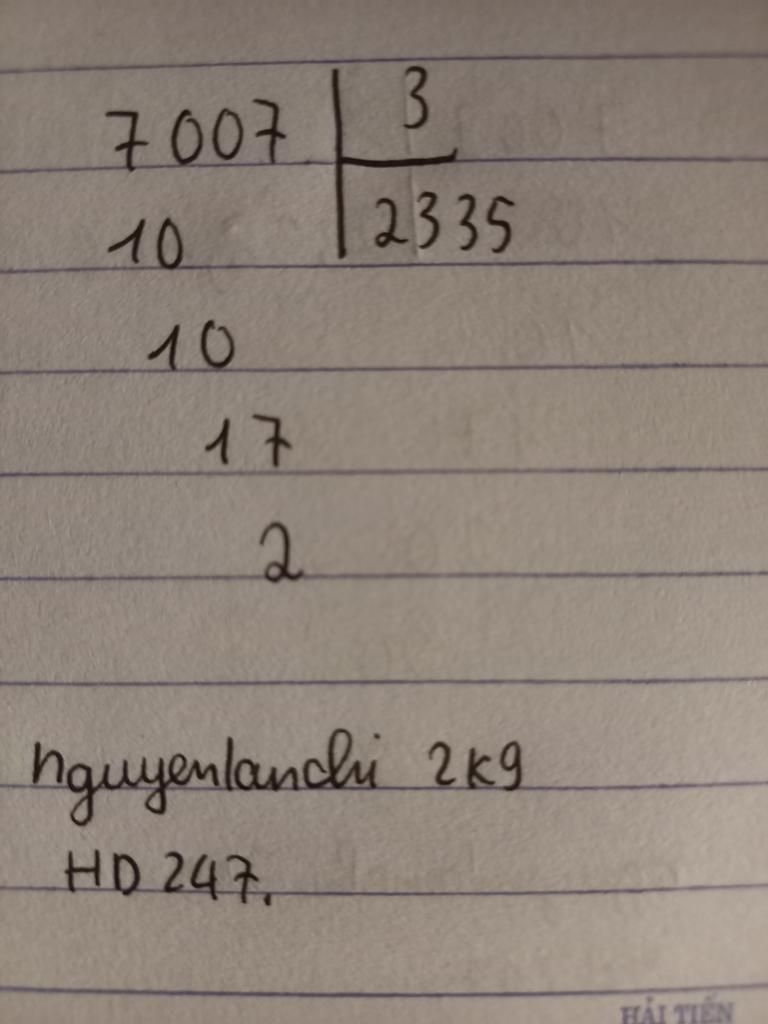 7007 3
10 2335
10
17
2
nguyenlanchi 2k9
HD 247.
HẢI TIẾN